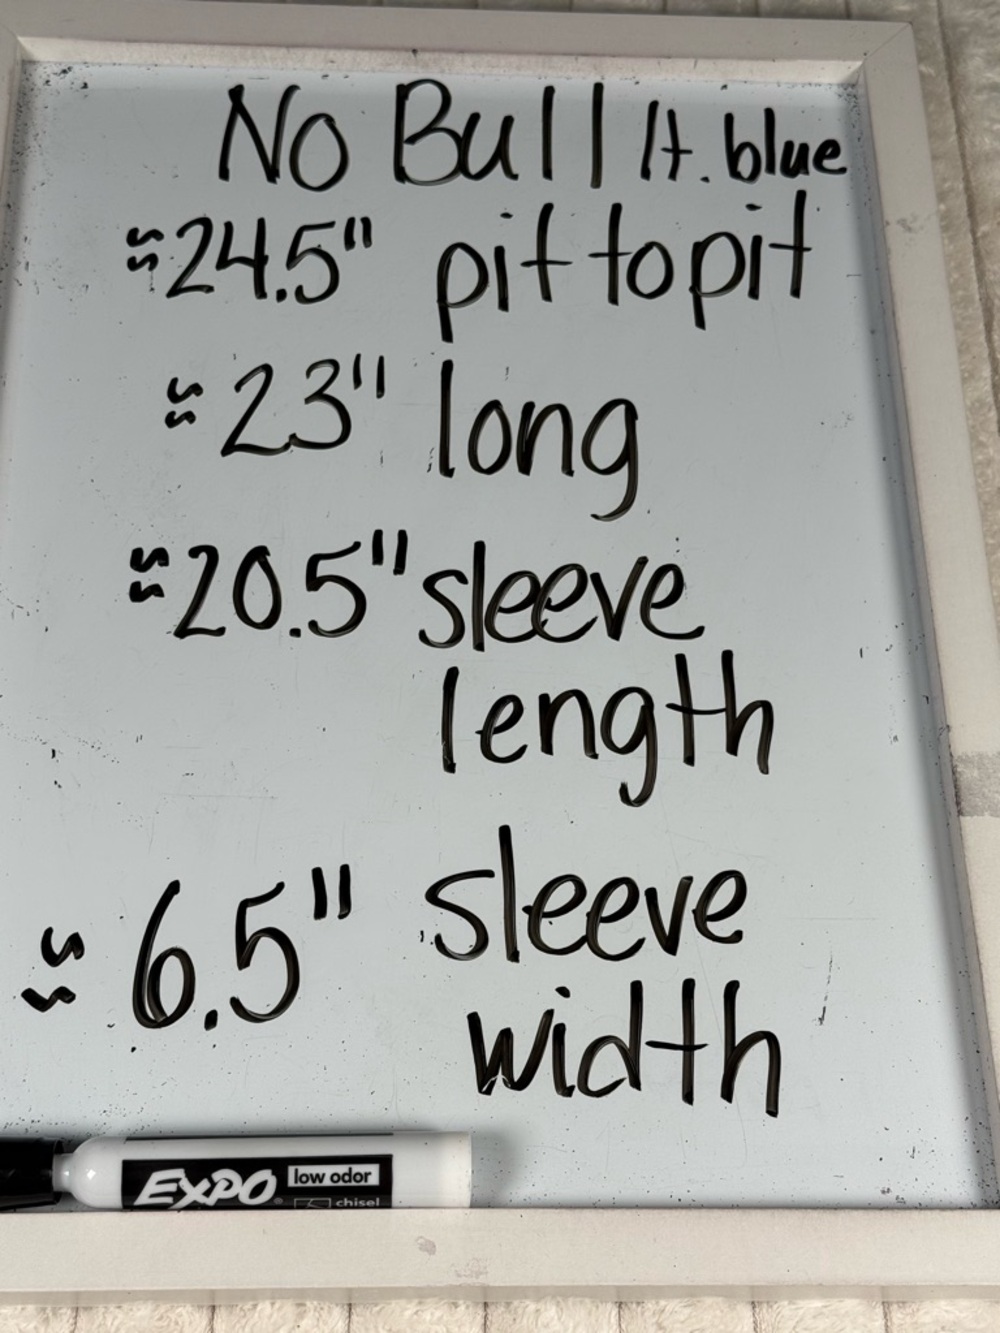 No Bull lt. blue
≈24.5" pit to pit
≈23" long
≈20.5" sleeve
length
≈6.5" sleeve
width
EXPO® low odor
chisel